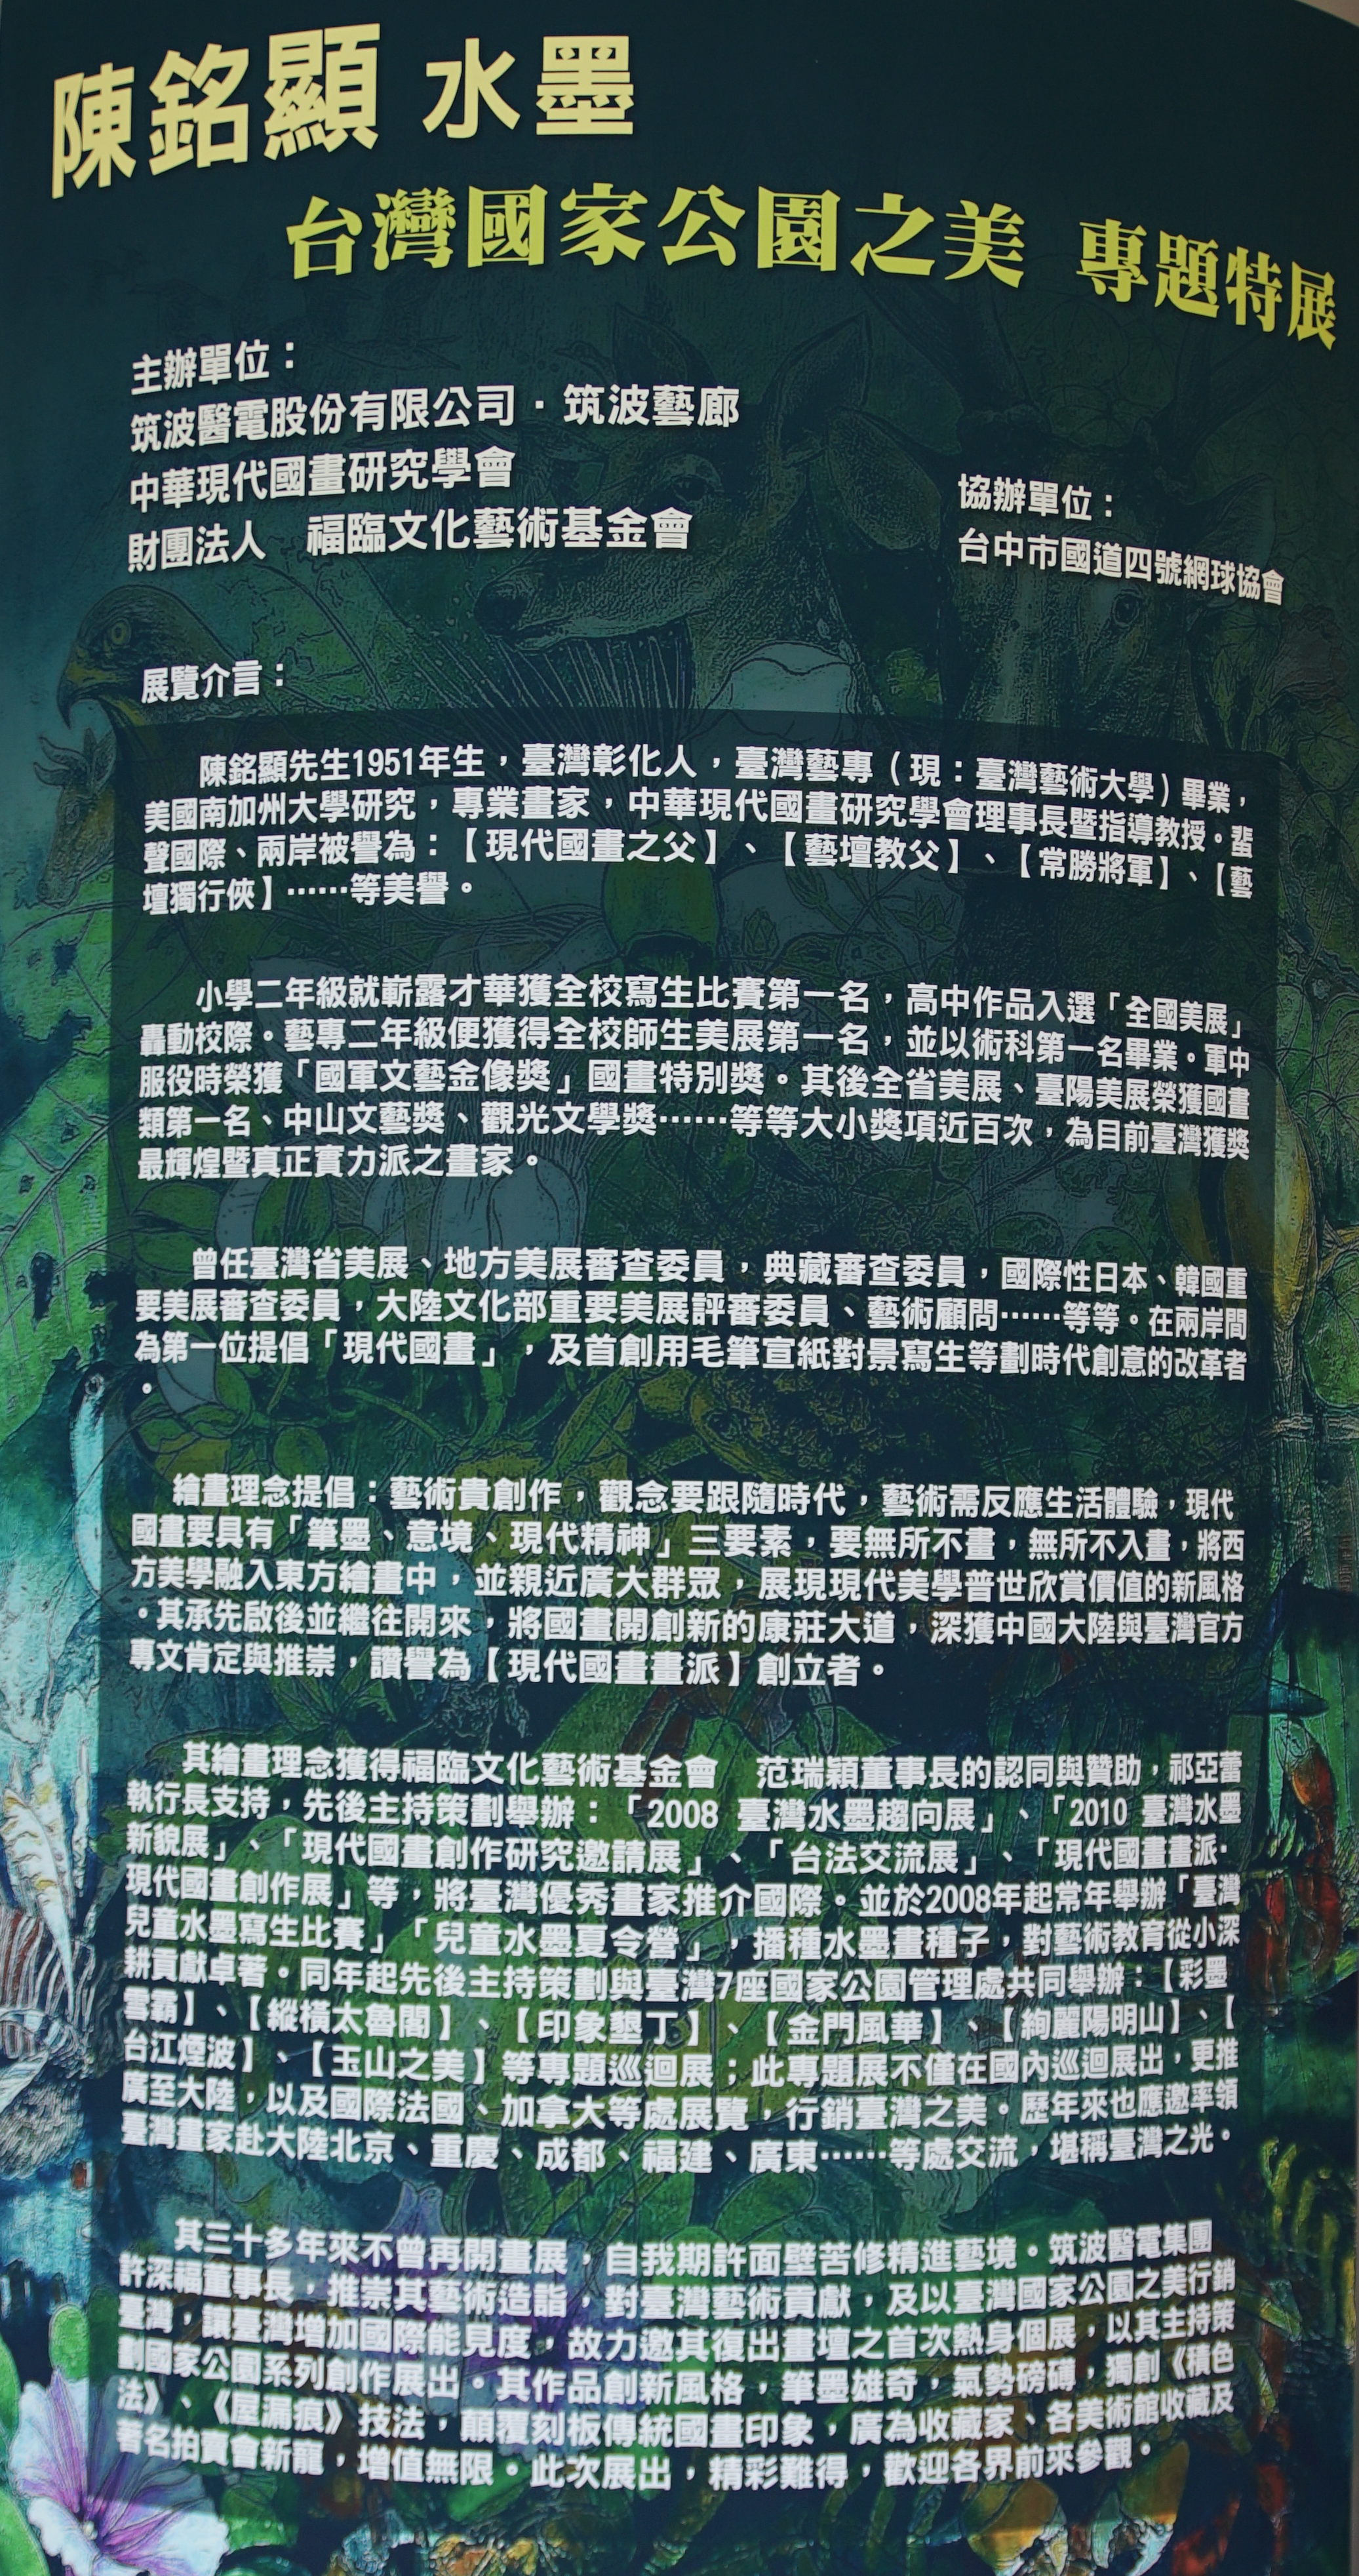 陳銘顯 水墨
台灣國家公園之美 專題特展
主辦單位：
筑波醫電股份有限公司．筑波藝廊
中華現代國畫研究學會
財團法人　福臨文化藝術基金會
協辦單位：
台中市國道四號網球協會
展覽介言：
陳銘顯先生1951年生，臺灣彰化人，臺灣藝專（現：臺灣藝術大學）畢業，
美國南加州大學研究，專業畫家，中華現代國畫研究學會理事長暨指導教授。蜚
聲國際、兩岸被譽為：【現代國畫之父】、【藝壇教父】、【常勝將軍】、【藝
壇獨行俠】……等美譽。
小學二年級就嶄露才華獲全校寫生比賽第一名，高中作品入選「全國美展」
轟動校際。藝專二年級便獲得全校師生美展第一名，並以術科第一名畢業。軍中
服役時榮獲「國軍文藝金像獎」國畫特別獎。其後全省美展、臺陽美展榮獲國畫
類第一名、中山文藝獎、觀光文學獎……等等大小獎項近百次，為目前臺灣獲獎
最輝煌暨真正實力派之畫家。
曾任臺灣省美展、地方美展審查委員，典藏審查委員，國際性日本、韓國重
要美展審查委員，大陸文化部重要美展評審委員、藝術顧問……等等。在兩岸間
為第一位提倡「現代國畫」，及首創用毛筆宣紙對景寫生等劃時代創意的改革者
。
繪畫理念提倡：藝術貴創作，觀念要跟隨時代，藝術需反應生活體驗，現代
國畫要具有「筆墨、意境、現代精神」三要素，要無所不畫，無所不入畫，將西
方美學融入東方繪畫中，並親近廣大群眾，展現現代美學普世欣賞價值的新風格
。其承先啟後並繼往開來，將國畫開創新的康莊大道，深獲中國大陸與臺灣官方
專文肯定與推崇，讚譽為【現代國畫畫派】創立者。
其繪畫理念獲得福臨文化藝術基金會　范瑞穎董事長的認同與贊助，祁亞蕾
執行長支持，先後主持策劃舉辦：「2008 臺灣水墨趨向展」、「2010 臺灣水墨
新貌展」、「現代國畫創作研究邀請展」、「台法交流展」、「現代國畫畫派·
現代國畫創作展」等，將臺灣優秀畫家推介國際。並於2008年起常年舉辦「臺灣
兒童水墨寫生比賽」「兒童水墨夏令營」，播種水墨畫種子，對藝術教育從小深
耕貢獻卓著。同年起先後主持策劃與臺灣7座國家公園管理處共同舉辦：【彩墨
雪霸】、【縱橫太魯閣】、【印象墾丁】、【金門風華】、【絢麗陽明山】、【
台江煙波】、【玉山之美】等專題巡迴展；此專題展不僅在國內巡迴展出，更推
廣至大陸，以及國際法國、加拿大等處展覽，行銷臺灣之美。歷年來也應邀率領
臺灣畫家赴大陸北京、重慶、成都、福建、廣東……等處交流，堪稱臺灣之光。
其三十多年來不曾再開畫展，自我期許面壁苦修精進藝境。筑波醫電集團
許深福董事長，推崇其藝術造詣，對臺灣藝術貢獻，及以臺灣國家公園之美行銷
臺灣，讓臺灣增加國際能見度，故力邀其復出畫壇之首次熱身個展，以其主持策
劃國家公園系列創作展出。其作品創新風格，筆墨雄奇，氣勢磅礡，獨創《積色
法》、《屋漏痕》技法，顛覆刻板傳統國畫印象，廣為收藏家、各美術館收藏及
著名拍賣會新寵，增值無限。此次展出，精彩難得，歡迎各界前來參觀。